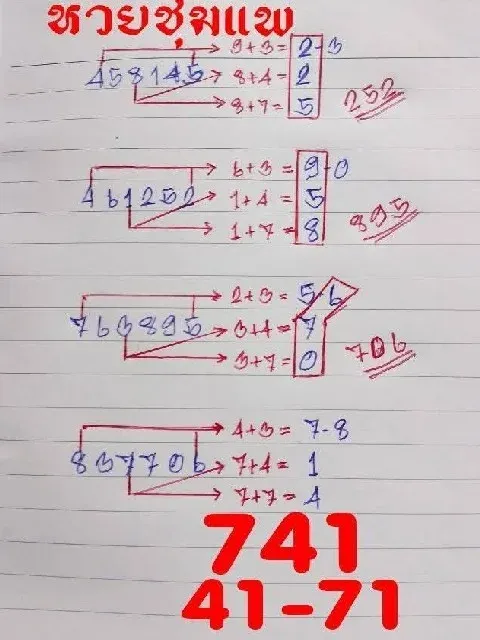 หวยชุมแพ
9+3= 2-3
458145 8+4= 2
8+7= 5 252
6+3 = 9-0
461252 1+4= 5
1+7= 8 895
2+3= 5-6
763895 3+4= 7
3+7= 0 706
4+3= 7-8
837706 7+4= 1
7+7= 4
741
41-71